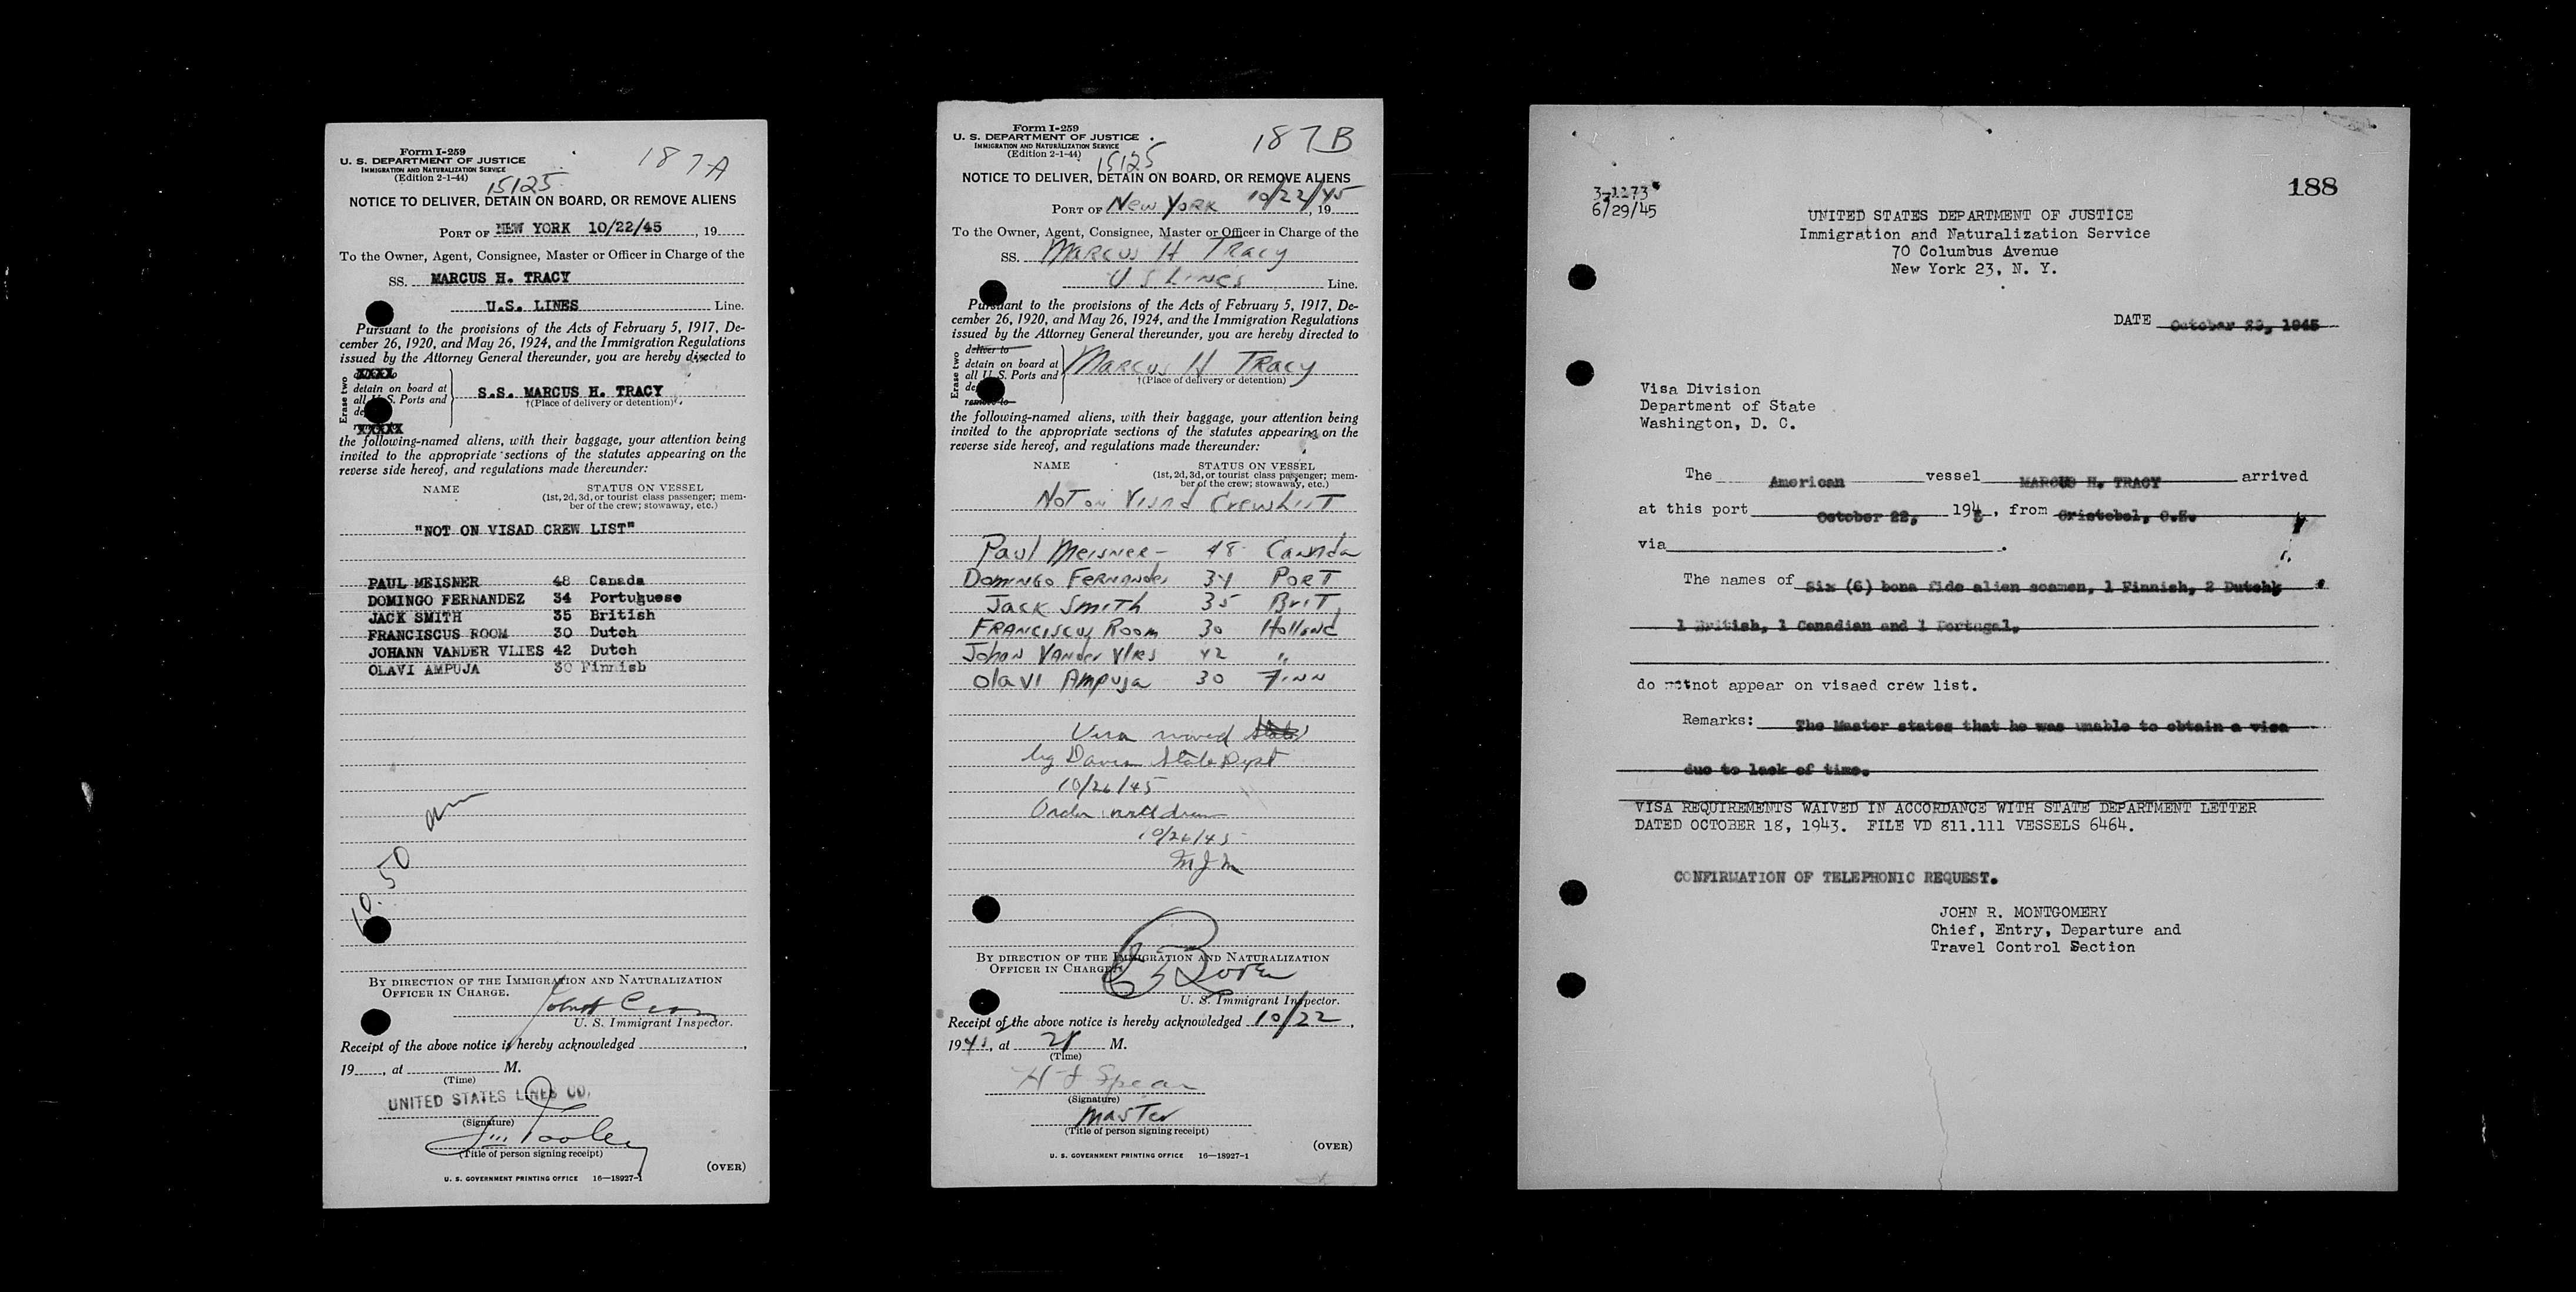 Form I-259
U. S. DEPARTMENT OF JUSTICE
IMMIGRATION AND NATURALIZATION SERVICE
(Edition 2-1-44)
187A
15125
NOTICE TO DELIVER, DETAIN ON BOARD, OR REMOVE ALIENS
PORT OF NEW YORK 10/22/45, 19
To the Owner, Agent, Consignee, Master or Officer in Charge of the
SS. MARCUS H. TRACY
U.S. LINES Line.
Pursuant to the provisions of the Acts of February 5, 1917, De-
cember 26, 1920, and May 26, 1924, and the Immigration Regulations
issued by the Attorney General thereunder, you are hereby directed to
Erase two
XXXX
detain on board at
all U. S. Ports and
de
XXXXX
S.S. MARCUS H. TRACY
†(Place of delivery or detention)
the following-named aliens, with their baggage, your attention being
invited to the appropriate sections of the statutes appearing on the
reverse side hereof, and regulations made thereunder:
NAME STATUS ON VESSEL
(1st, 2d, 3d, or tourist class passenger; mem-
ber of the crew; stowaway, etc.)
"NOT ON VISAD CREW LIST"
PAUL MEISNER 48 Canada
DOMINGO FERNANDEZ 34 Portuguese
JACK SMITH 35 British
FRANCISCUS ROOM 30 Dutch
JOHANN VANDER VLIES 42 Dutch
OLAVI AMPUJA 30 Finnish
10.50
BY DIRECTION OF THE IMMIGRATION AND NATURALIZATION
OFFICER IN CHARGE.
U. S. Immigrant Inspector.
Receipt of the above notice is hereby acknowledged
19, at M.
(Time)
UNITED STATES LINES CO.
(Signature)
Tooley
(Title of person signing receipt)
(OVER)
U. S. GOVERNMENT PRINTING OFFICE 16—18927-1
Form I-259
U. S. DEPARTMENT OF JUSTICE
IMMIGRATION AND NATURALIZATION SERVICE
(Edition 2-1-44)
187B
15125
NOTICE TO DELIVER, DETAIN ON BOARD, OR REMOVE ALIENS
PORT OF New York 10/22/45, 19
To the Owner, Agent, Consignee, Master or Officer in Charge of the
SS. Marcus H Tracy
U S Lines Line.
Pursuant to the provisions of the Acts of February 5, 1917, De-
cember 26, 1920, and May 26, 1924, and the Immigration Regulations
issued by the Attorney General thereunder, you are hereby directed to
Erase two
deliver to
detain on board at
all U. S. Ports and
de
remove to
Marcus H Tracy
†(Place of delivery or detention)
the following-named aliens, with their baggage, your attention being
invited to the appropriate sections of the statutes appearing on the
reverse side hereof, and regulations made thereunder:
NAME STATUS ON VESSEL
(1st, 2d, 3d, or tourist class passenger; mem-
ber of the crew; stowaway, etc.)
Not on Visad Crew List
Paul Meisner - 48 Canada
Domingo Fernandes 34 Port
Jack Smith 35 Brit
Franciscus Room 30 Holland
Johan Vander Vlies 42 "
Olavi Ampuja 30 Finn
Visa waived
by Davis State Dept
10/26/45
Order withdrawn
10/26/45
MJM
BY DIRECTION OF THE IMMIGRATION AND NATURALIZATION
OFFICER IN CHARGE
U. S. Immigrant Inspector.
Receipt of the above notice is hereby acknowledged 10/22,
1945, at M.
(Time)
H J Spear
(Signature)
Master
(Title of person signing receipt)
(OVER)
U. S. GOVERNMENT PRINTING OFFICE 16—18927-1
3-1273
6/29/45
188
UNITED STATES DEPARTMENT OF JUSTICE
Immigration and Naturalization Service
70 Columbus Avenue
New York 23, N. Y.
DATE October 29, 1945
Visa Division
Department of State
Washington, D. C.
The American vessel MARCUS H. TRACY arrived
at this port October 22, 1945, from Cristobel, C.Z.
via .
The names of Six (6) bona fide alien seamen, 1 Finnish, 2 Dutch,
1 British, 1 Canadian and 1 Portugal,
do not appear on visaed crew list.
Remarks: The Master states that he was unable to obtain a visa
due to lack of time.
VISA REQUIREMENTS WAIVED IN ACCORDANCE WITH STATE DEPARTMENT LETTER
DATED OCTOBER 18, 1943. FILE VD 811.111 VESSELS 6464.
CONFIRMATION OF TELEPHONIC REQUEST.
JOHN R. MONTGOMERY
Chief, Entry, Departure and
Travel Control Section